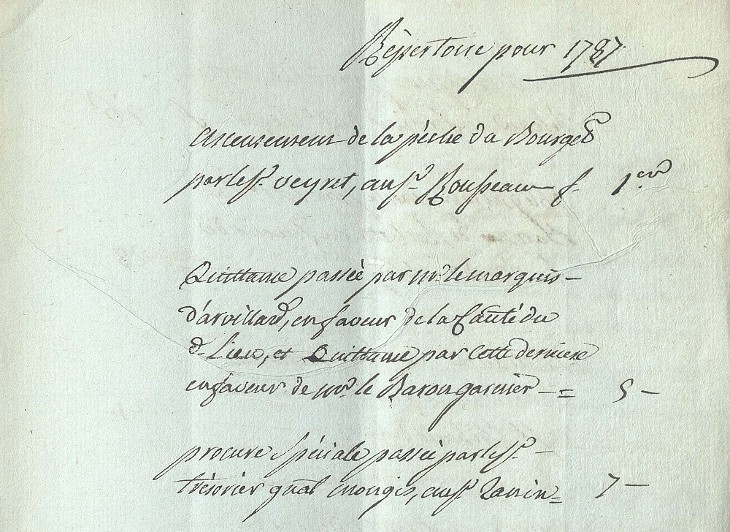 Répertoire pour 1787.
Ascensement de la pêche du Bourget
par le sr. Veyret, au sr. Rousseau f. 1er
Quittance passée par mr. le marquis
d'arvillard, en faveur de la Cauté du
d. Lieu, et Quittance par cette derniere
en faveur de mr. le Baron garnier = 5
procure Spéciale passée par le sr.
trésorier gnal mongis, au sr.
7